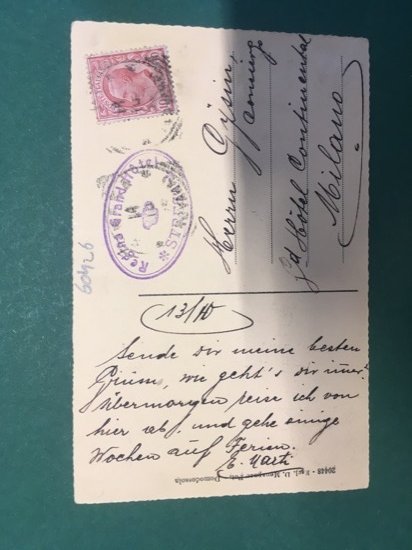 Herrn Gysin,
p/d Hôtel Continental
Milano
Regina Grand Hotel
* STRESA *
60426
13/10
Sende dir meine besten
Grüsse, wie geht's dir
Übermorgen reise ich von
hier ab und gehe einige
Wochen auf Ferien.
E. Marti
20448 - Domodossola